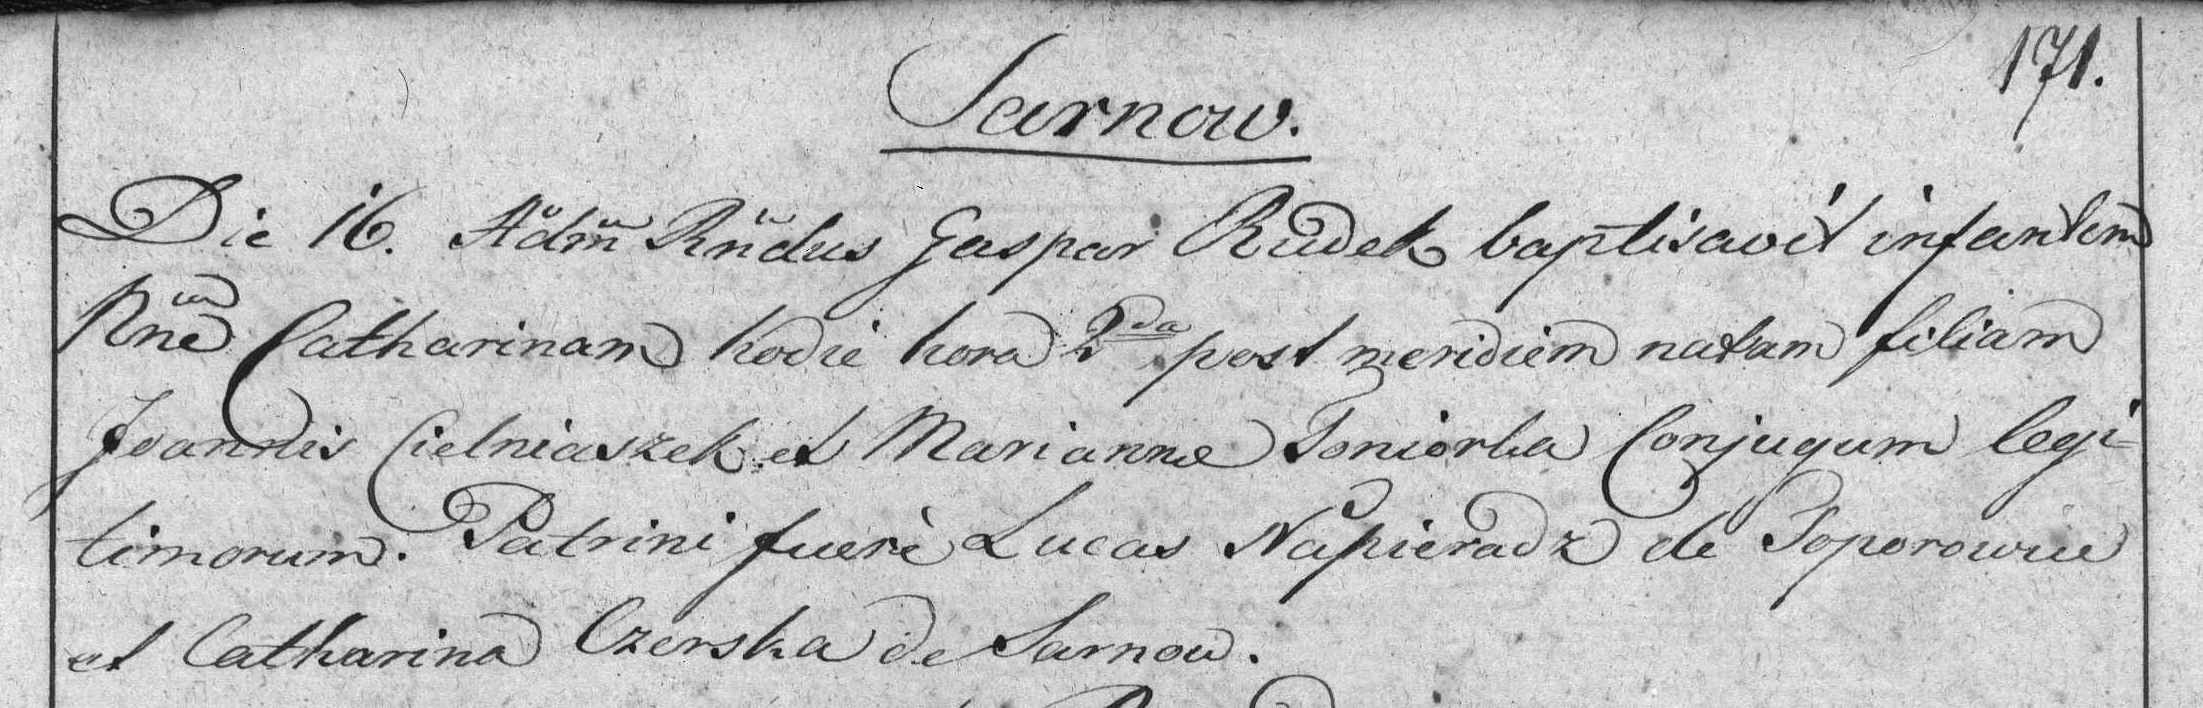 171.
Sarnow.
Die 16. Adm Rndus Gaspar Rudek baptisavit infantem
Rne Catharinam hodie hora 2da post meridiem natam filiam
Joannis Cielniaszek et Marianne Toniorka Conjugum legi-
timorum. Patrini fuere Lucas Napieradz de Toporowice
et Catharina Czerska de Sarnow.